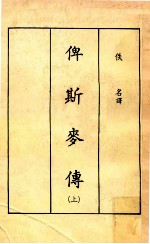 佚名譯
俾斯麥傳
(上)